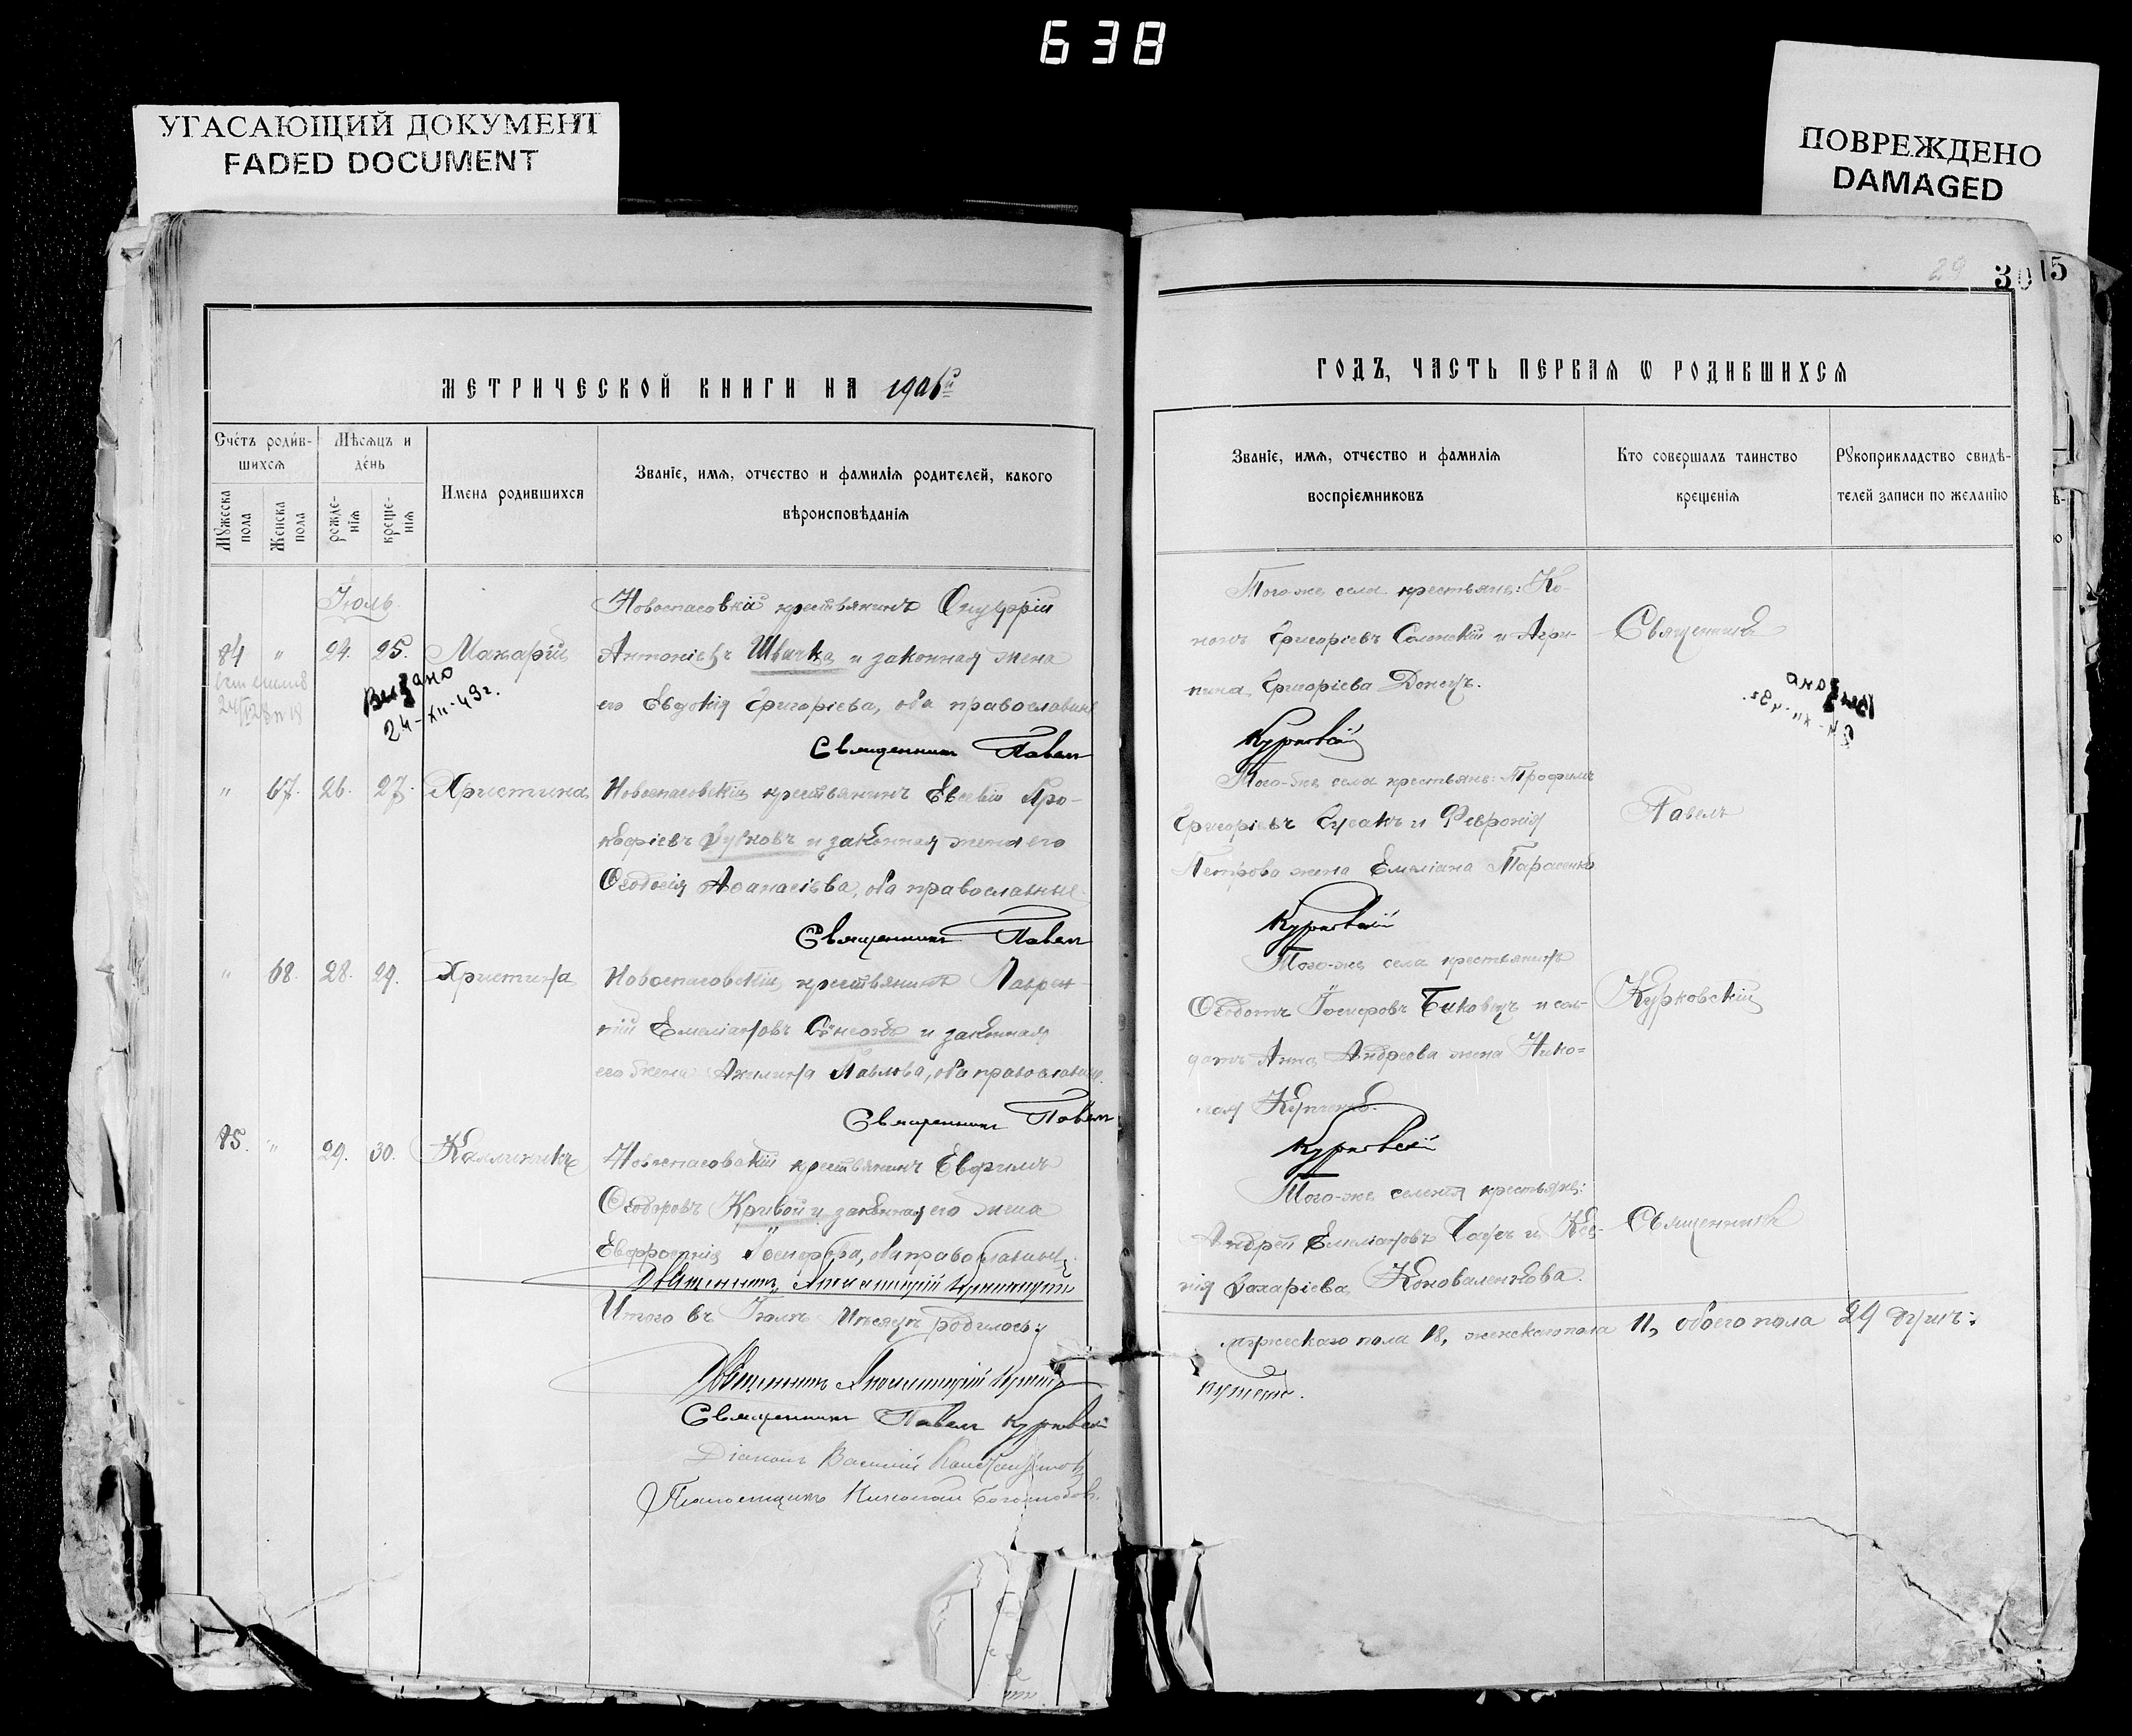 638
УГАСАЮЩИЙ ДОКУМЕНТ
FADED DOCUMENT
ПОВРЕЖДЕНО
DAMAGED
29
30
15
МЕТРИЧЕСКОЙ КНИГИ НА 1906й
Счётъ родив-
шихсѧ
Мѣсѧцъ и
день
Имена родившихся
Званіе, имѧ, отчество и фамиліѧ родителей, какого
вѣроисповѣданіѧ
Мꙋжеска
пола
Женска
пола
рожде-
нія
креще-
нія
Іюль
Новоспасовскій крестьянинъ Онуфрій
84 " 24. 25. Макарій Антоніевъ Швачка и законная жена
его Евдокія Григорьева, оба православные
Выдано
24-XII-43г.
Священникъ Павелъ
" 67. 26. 27. Христина Новоспасовскій крестьянинъ Евсевій Про-
кофіевъ и законная жена его
Ѳеодосія Аѳанасіева, оба православные.
Священникъ Павелъ
" 68. 28. 29. Христина Новоспасовскій крестьянинъ Лаврен-
тій Емеліановъ и законная
его жена Акилина Павлова, оба православные.
Священникъ Павелъ
85. " 29. 30. Каллиникъ Новоспасовскій крестьянинъ Евфимъ
Ѳеодоровъ Кривой и законная его жена
Евфросинія Іосифова, оба православные.
Священникъ
Итого въ Іюлѣ мѣсяцѣ родилось:
Священникъ
Священникъ Павелъ Курковскій
Діаконъ Василій Константиновъ
Псаломщикъ Николай Боголюбовъ.
ГОДЪ, ЧАСТЬ ПЕРВАѦ Ѡ РОДИВШИХСѦ
Званіе, имѧ, отчество и фамиліѧ
воспріемниковъ
Кто совершалъ таинство
крещеніѧ
Рꙋкоприкладство свидѣ-
телей записи по желанію
Того-же села крестьяне: Ко-
нонъ Григоріевъ Солонскій и Агри-
пина Григоріева Донецъ.
Курковскій
Священникъ
Выдано
24-XII-43г.
Того-же села крестьяне: Трофимъ
Григоріевъ Гусакъ и Февронія
Петрова жена Емеліана Тарасенко
Курковскій
Павелъ
Того-же села крестьянинъ
Ѳеодотъ Іосифовъ Биковецъ и сол-
датъ Анна Андреева жена Нико-
лая
Курковскій
Курковскій
Того-же селенія крестьяне:
Андрей Емеліановъ и Ксе-
нія Захаріева Коноваленкова.
Священникъ
мужескаго пола 18, женскаго пола 11, обоего пола 29 душъ: